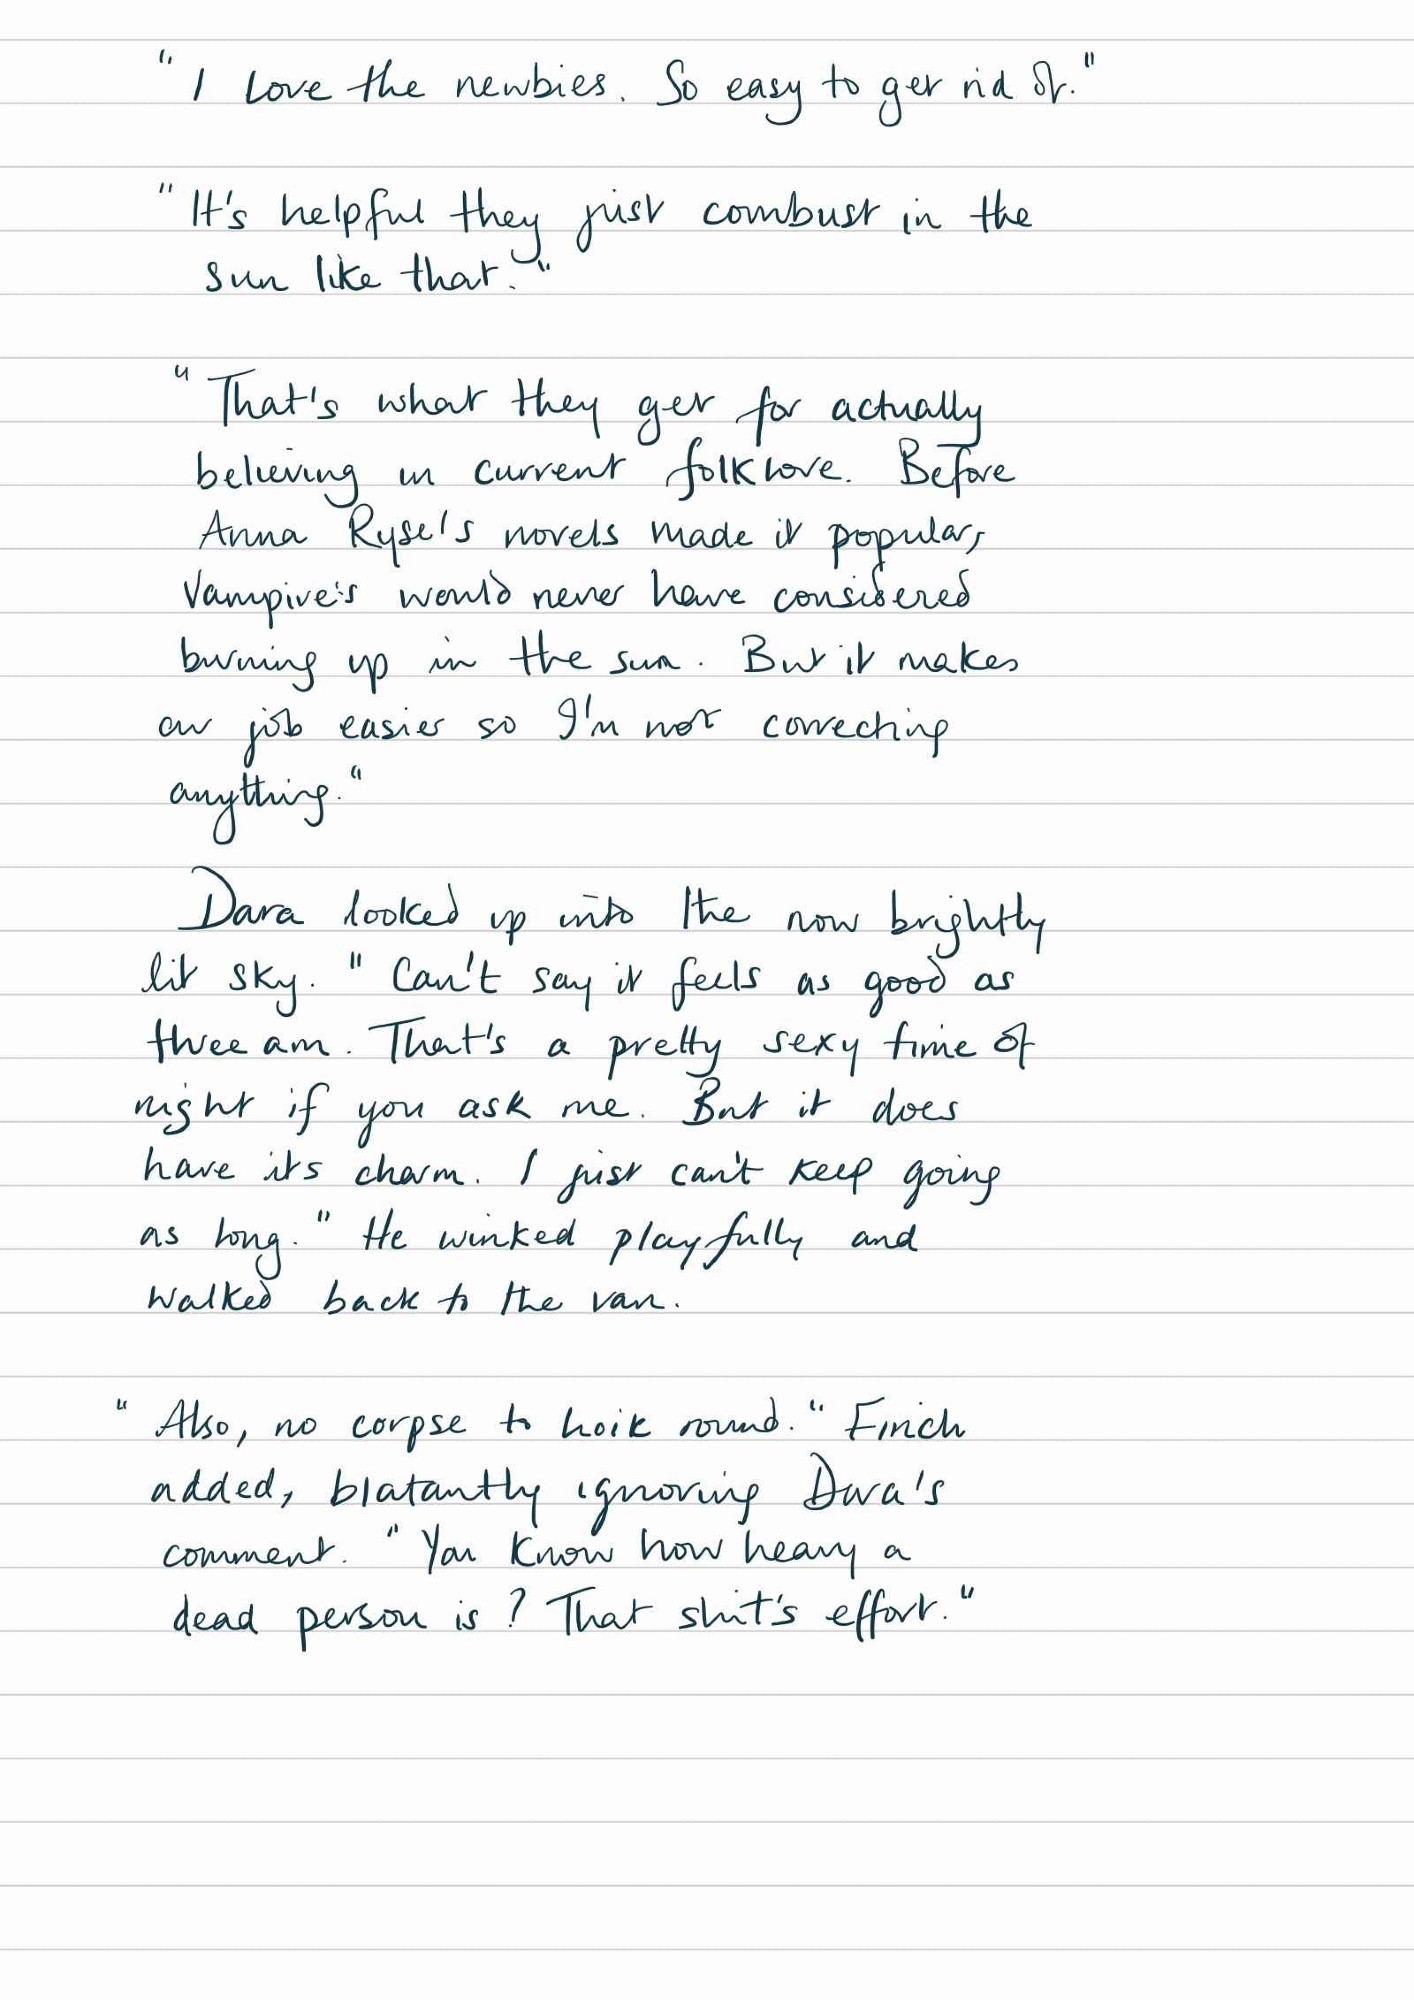 "I love the newbies. So easy to get rid of."
"It's helpful they just combust in the
sun like that."
"That's what they get for actually
believing in current folklore. Before
Anna Ryse's novels made it popular,
Vampire's would never have considered
burning up in the sun. But it makes
our job easier so I'm not correcting
anything."
Dara looked up into the now brightly
lit sky. "Can't say it feels as good as
three am. That's a pretty sexy time of
night if you ask me. But it does
have its charm. I just can't keep going
as long." He winked playfully and
walked back to the van.
"Also, no corpse to hoik round." Finch
added, blatantly ignoring Dara's
comment. "You know how heavy a
dead person is? That shit's effort."